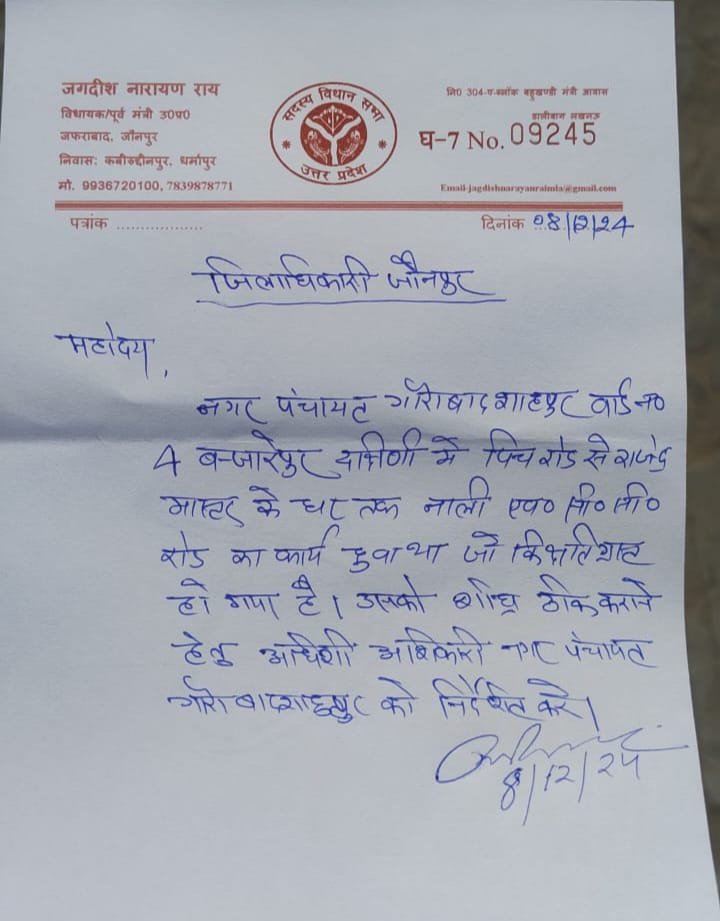 जगदीश नारायण राय
विधायक/पूर्व मंत्री उ0प्र0
जफराबाद, जौनपुर
निवास: कबीरुद्दीनपुर, धर्मापुर
मो. 9936720100, 7839878771
सदस्य विधान सभा
उत्तर प्रदेश
नि0 304-ए-ब्लॉक बहुखण्डी मंत्री आवास
डालीबाग लखनऊ
घ-7 No. 09245
Email-jagdishnarayanraimla@gmail.com
पत्रांक ..................
दिनांक 08/12/24
जिलाधिकारी जौनपुर
महोदय,
नगर पंचायत गौराबादशाहपुर वार्ड न०
4 बन्जारेपुर दक्षिणी में पिच रोड से राजेन्द्र
मास्टर के घर तक नाली एव० सी० सी०
रोड का कार्य हुवा था जो कि क्षतिग्रस्त
हो गया है। उसको शीघ्र ठीक कराने
हेतु अधिशी अधिकारी नगर पंचायत
गौराबादशाहपुर को निर्देशित करे।
8/12/24